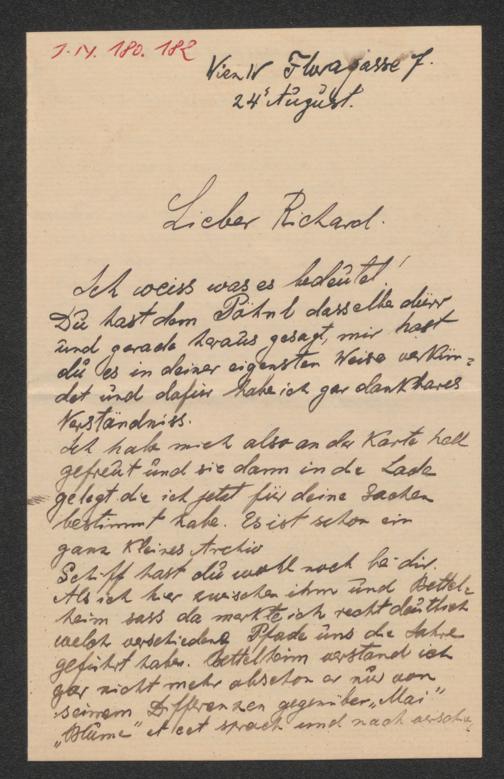 J. N. 180.182
Wien IV Floragasse 7.
24t August.
Lieber Richard.
Ich weiss was es bedeutet!
Du hast dem Pöhnl dasselbe dürr
und gerade heraus gesagt, mir hast
du es in deiner eigensten Weise verkün-
det und dafür habe ich gar dankbares
Verständniss.
Ich habe mich also an der Karte hell
gefreut und sie dann in die Lade
gelegt die ich jetzt für deine Sachen
bestimmt habe. Es ist schon ein
ganz kleines Archiv
Schiff hast du wohl noch bei dir.
Als ich hier zwischen ihm und Bettel-
heim sass da merkte ich recht deutlich
welch verschiedene Pfade uns die Jahre
geführt haben. Bettelheim verstand ich
gar nicht mehr obschon er nur von
seinem Differenzen gegenüber „Mai"
„Blume" et cet sprach und nach